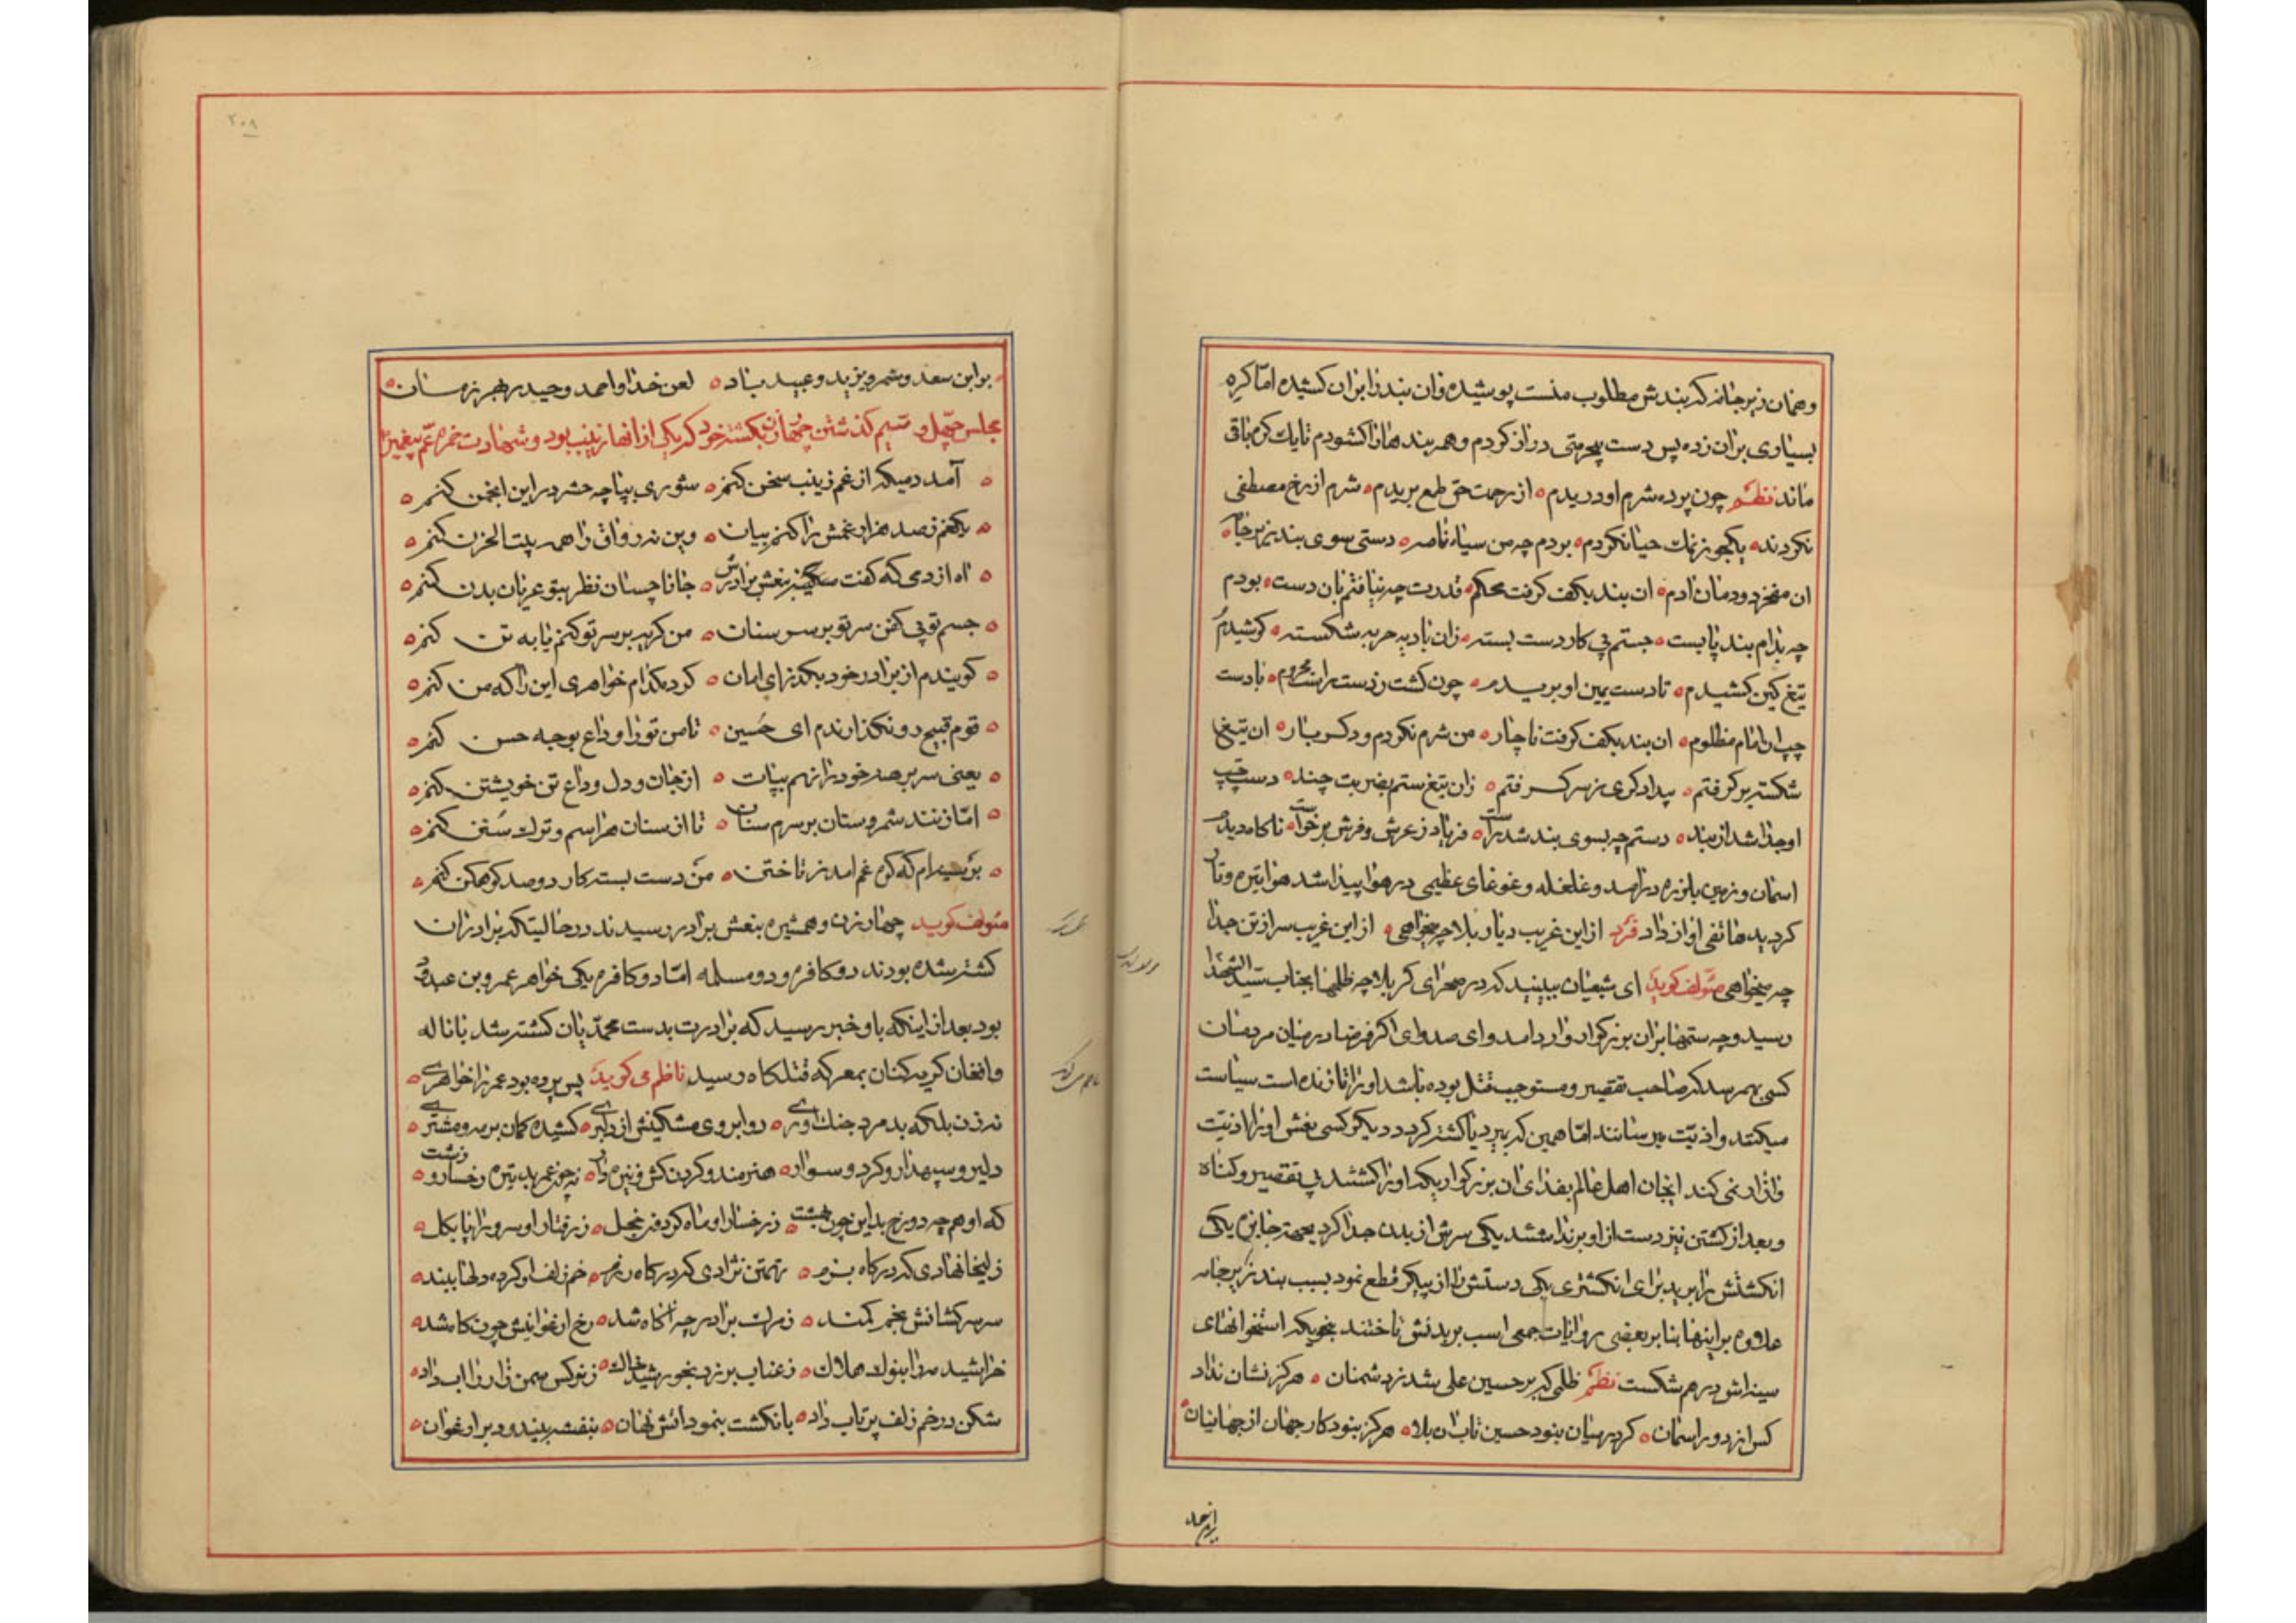 وهمان زیر جامه که بندش مطلوب منست پوشیده و ان بند را بران کشیده امّا کره
بسیاری بران زده پس دست بیحرمتی دراز کردم و همه بندها را کشودم تا یک کره باقی
ماند نظم چون پرده شرم او دریدم از رحمت حق طمع بریدم شرم از رخ مصطفی
نکردند یکجو ز نمک حیا نکردم بودم چه من سیاه نامه دستی سوی بند زیر جامه
ان مفخر دودمان ادم ان بند بکف کرفت محکم قدرت چه نیافتم بان دست بودم
چه بدام بند پا بست جستم پی کار دست بسته زان بادیه حربه شکسته کوشیدم
تیغ کین کشیدم تا دست یمین او بریدم چون کشت ز دست راست محروم با دست
چپ ان امام مظلوم ان بند بکف کرفت ناچار من شرم نکردم و دکر بار ان تیغ
شکسته بر کرفتم بیدادکری ز سر کرفتم زان تیغ ستم بضربت چند دست چپ
او جدا شد از بند دستم چه بسوی بند شد راست فریاد ز عرش و فرش برخواست ناکاه دیدم
اسمان و زمین بلرزه درامد و غلغله و غوغای عظیمی در هوا پیدا شد هوا تیره و تار
کردید هاتفی اواز داد فرد ازاین غریب دیار بلا چه میخواهی ازاین غریب سر از تن جدا
چه میخواهی مؤلف کوید ای شیعیان ببینید که در صحرای کربلا چه ظلمها بجناب سیّد الشهدا
رسید و چه ستمها بران بزرکوار وارد امد وای صد وای اکر فرضا در میان مردمان
کسی بهم رسد که صاحب تقصیر و مستوجب قتل بوده باشد او را تا زنده است سیاست
میکنند و اذیّت میرسانند امّا همین که بمیرد یا کشته کردد دیکر کسی نعش او را اذیّت
و ازار نمی کند ایجان اهل عالم بفدای ان بزرکوار بکه او را کشتند بی تقصیر و کناه
و بعد از کشتن نیز دست از او برنداشتند یکی سرش از بدن جدا کرد بجهة جایزه یکی
انکشتش را برید برای انکشتری یکی دستش را از پیکر قطع نمود بسبب بند زیر جامه
علاوه بر اینها بنا بر بعضی روایات جمعی اسب بر بدنش تاختند بنحویکه استخوانهای
سینه اش درهم شکست نظم ظلمی که بر حسین علی شد ز دشمنان هرکز نشان نداد
کس از دور اسمان کر در میان بنود حسین تاب ان بلا هرکز بنود کار جهان از جهانیان
بر ابن سعد و شمر و یزید و عبید باد لعن خدا و احمد و حیدر بهر زمان
مجلس چهل و سیم کذشتن چهار زن بکشته خود که یکی از انها زینب بود و شهادت حمزه عمّ پیغمبر
آمد دمیکه از غم زینب سخن کنم شوری بپا چه حشر در این انجمن کنم
یکغم ز صد هزار غمش را کنم بیان وین نه رواق را همه بیت الحزن کنم
اه از دمی که کفت سکینه بنعش برادرش جانا چسان نظر بتو عریان بدن کنم
جسم تو بی کفن سر تو بر سر سنان من کریه بر سر تو کنم یا به تن کنم
کویندم از برادر خود بکذر ای امان کرد کدام خواهری این را که من کنم
قوم قبیح دو نکذارندم ای حسین تا من تو را وداع بوجه حسن کنم
یعنی سر بر صدر خود را نهم بپات از جان و دل وداع تن خویشتن کنم
امّا زنند شمر و سنان بر سرم سنان تا از سنان هراسم و ترک سخن کنم
بر سینه ام که کوه غم امد ز تاختن من دست بسته کار دو صد کوهکن کنم
مؤلف کوید چهار زن و همشیره بنعش برادر رسیدند در حالیتکه برادران
کشته شده بودند دو کافره و دو مسلمه امّا دو کافره یکی خواهر عمرو بن عبدود
بود بعد از اینکه باو خبر رسید که برادرت بدست محمّدیان کشته شد با ناله
و افغان کریه کنان بمعرکه قتلکاه رسید ناظم می کوید پس پرده بود عمر را خواهری
نه زن بلکه بد مرد جنک اوری دو ابروی مشکینش از دلبری کشیده کمان بر مه و مشتری
دلیر و سپهدار و کرد و سوار هنرمند و کردن کش و نیزه دار نه چون عمر بد تیره رخسار و زشت
که او هم چه دوزخ بد این چون بهشت ز رخسار او ماه کردون خجل ز رفتار او سرو را پا بکل
زلیخا نهادی که درکاه بزم تهمتن نژادی که درکاه رزم خم زلف او کرده دلها ببند
سر سرکشانش بخم کمند ز مرک برادر چه اکاه شد رخ ارغوانیش چون کاه شد
خراشید مه را بنوک هلال ز عناب بر زد بخورشید خال ز نرکس سمن زار را اب داد
شکن در خم زلف پرتاب داد بانکشت بنمود انش نهان بنفشه بچیند و در ارغوان